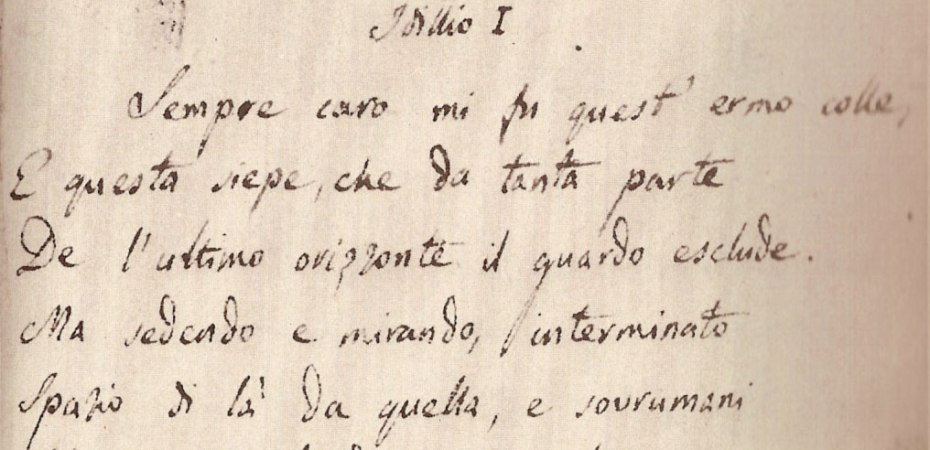 Idillio I
Sempre caro mi fu quest' ermo colle,
E questa siepe, che da tanta parte
De l'ultimo orizzonte il guardo esclude.
Ma sedendo e mirando, interminato
Spazio di là da quella, e sovrumani